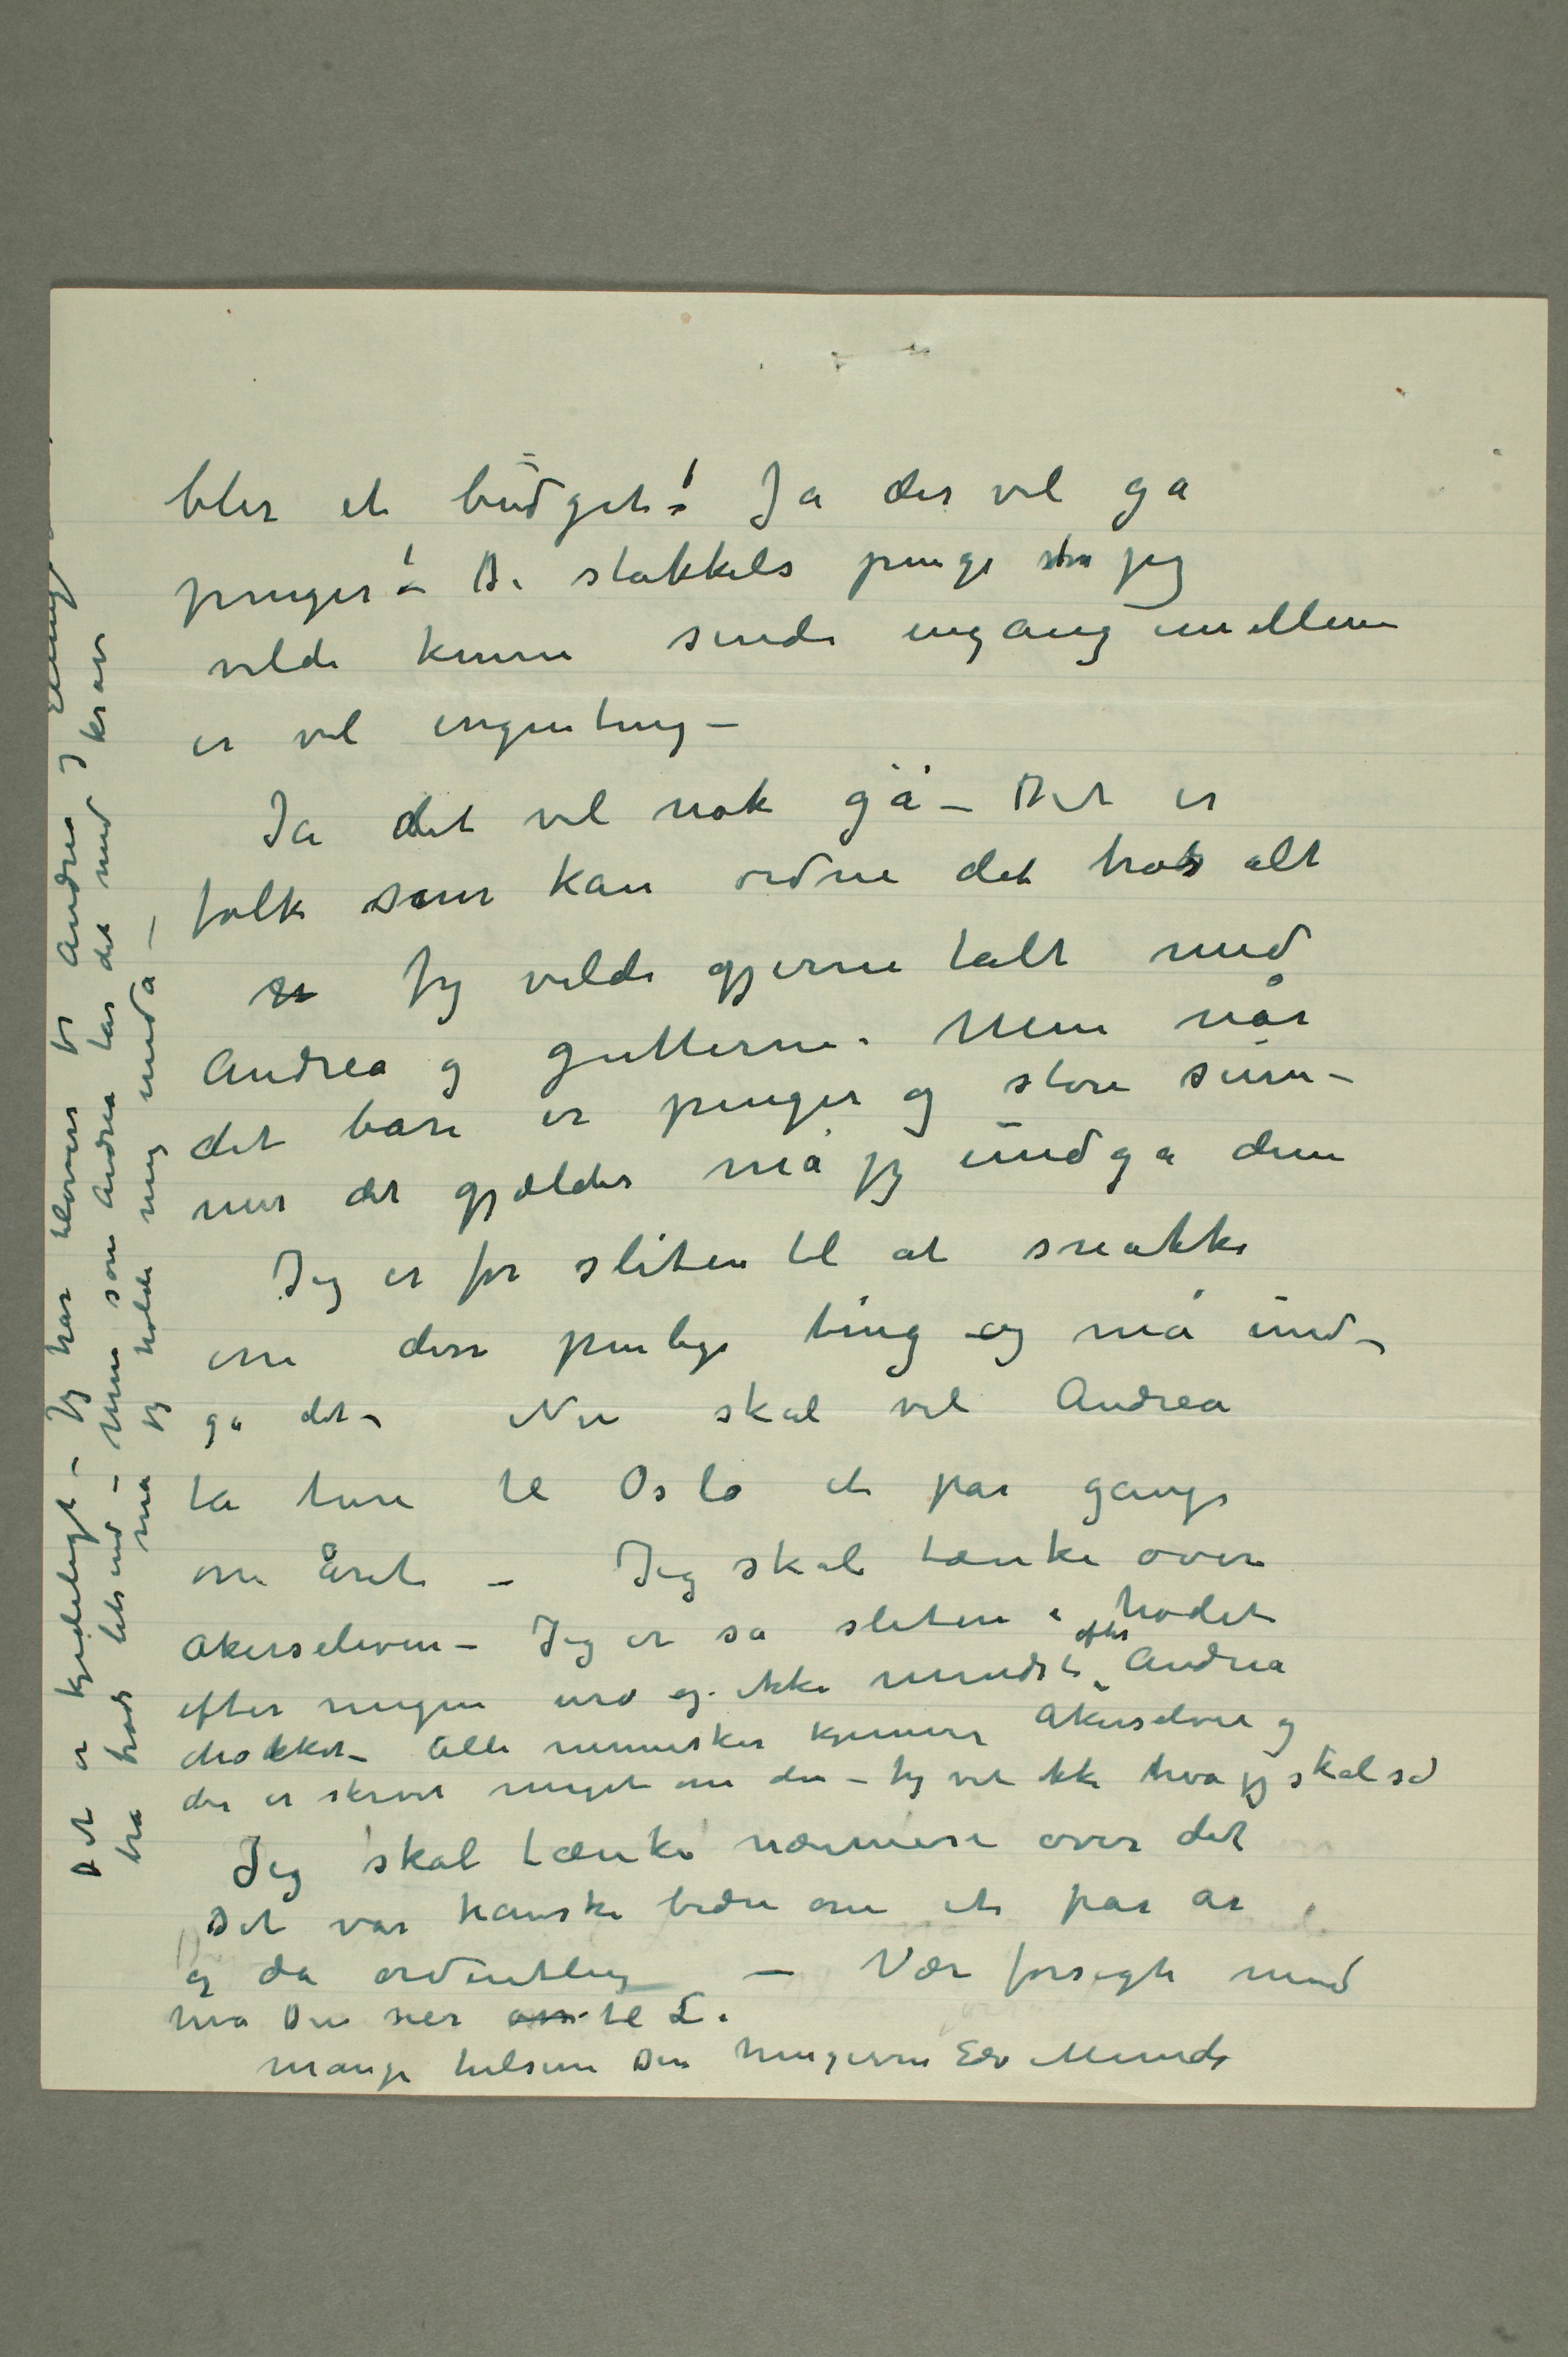 blir et budget! Ja der vil gå
penger! – De stakkels penge som jeg
vilde kunne sende engang imellem
er vel ingenting –
Ja det vil nok gå – Det er
folk som kan ordne det trods alt
Jeg vilde gjerne talt med
Andrea og gutterne. Men når
det bare er penger og store sum-
mer det gjælder må jeg undgå dem
Jeg er for sliten til at snakke
om disse pinlige ting og må und-
gå det – Nu skal vel Andrea
ta ture til Oslo et par gange
om året – Jeg skal tænke over
Akerselven – Jeg er så sliten i hodet
efter megen uro og ikke mindst efter Andrea
chokket – Alle mennesker kjenner Akerselven og
der er skrevet meget om den – Jeg vet ikke hva jeg skal si
Jeg skal tænke nærmere over det
Det var kanske bedre om et par år
og da ordentlig – Vær forsigtig med
hva Du sier til L.
Mange hilsener Din hengivne Edv Munch
Det er kjedeligt – Jeg har
trods – Men som Andrea tar det med krav
må jeg holde mig unda –